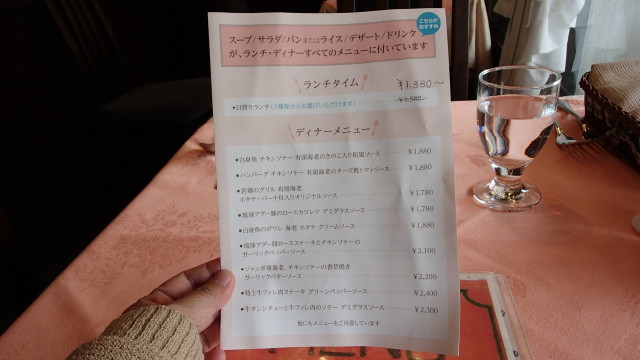 こちらが
おすすめ
スープ/サラダ/パンまたはライス/デザート/ドリンク
が、ランチ・ディナーすべてのメニューに付いています
ランチタイム
¥1,380〜
•日替りランチ(3種類からお選びいただけます) ¥1,580〜
ディナーメニュー
•白身魚 チキンソテー 有頭海老のきのこ入り和風ソース ¥1,880
•ハンバーグ チキンソテー 有頭海老のチーズ焼トマトソース ¥1,880
•若鶏のグリル 有頭海老
ホタテ・バーナ貝入りオリジナルソース ¥1,780
•琉球アグー豚のロースカツレツ デミグラスソース ¥1,780
•白身魚のポワレ 海老 ホタテ クリームソース ¥1,880
•琉球アグー豚ロースステーキとチキンソテーの
ガーリックペッパーソース ¥2,100
•ジャンボ車海老、チキンソテーの香草焼き
ガーリックバターソース ¥2,200
•特上牛フィレ肉ステーキ グリーンペッパーソース ¥2,400
•牛タンシチューと牛フィレ肉のソテー デミグラスソース ¥2,300
他にもメニューをご用意しています